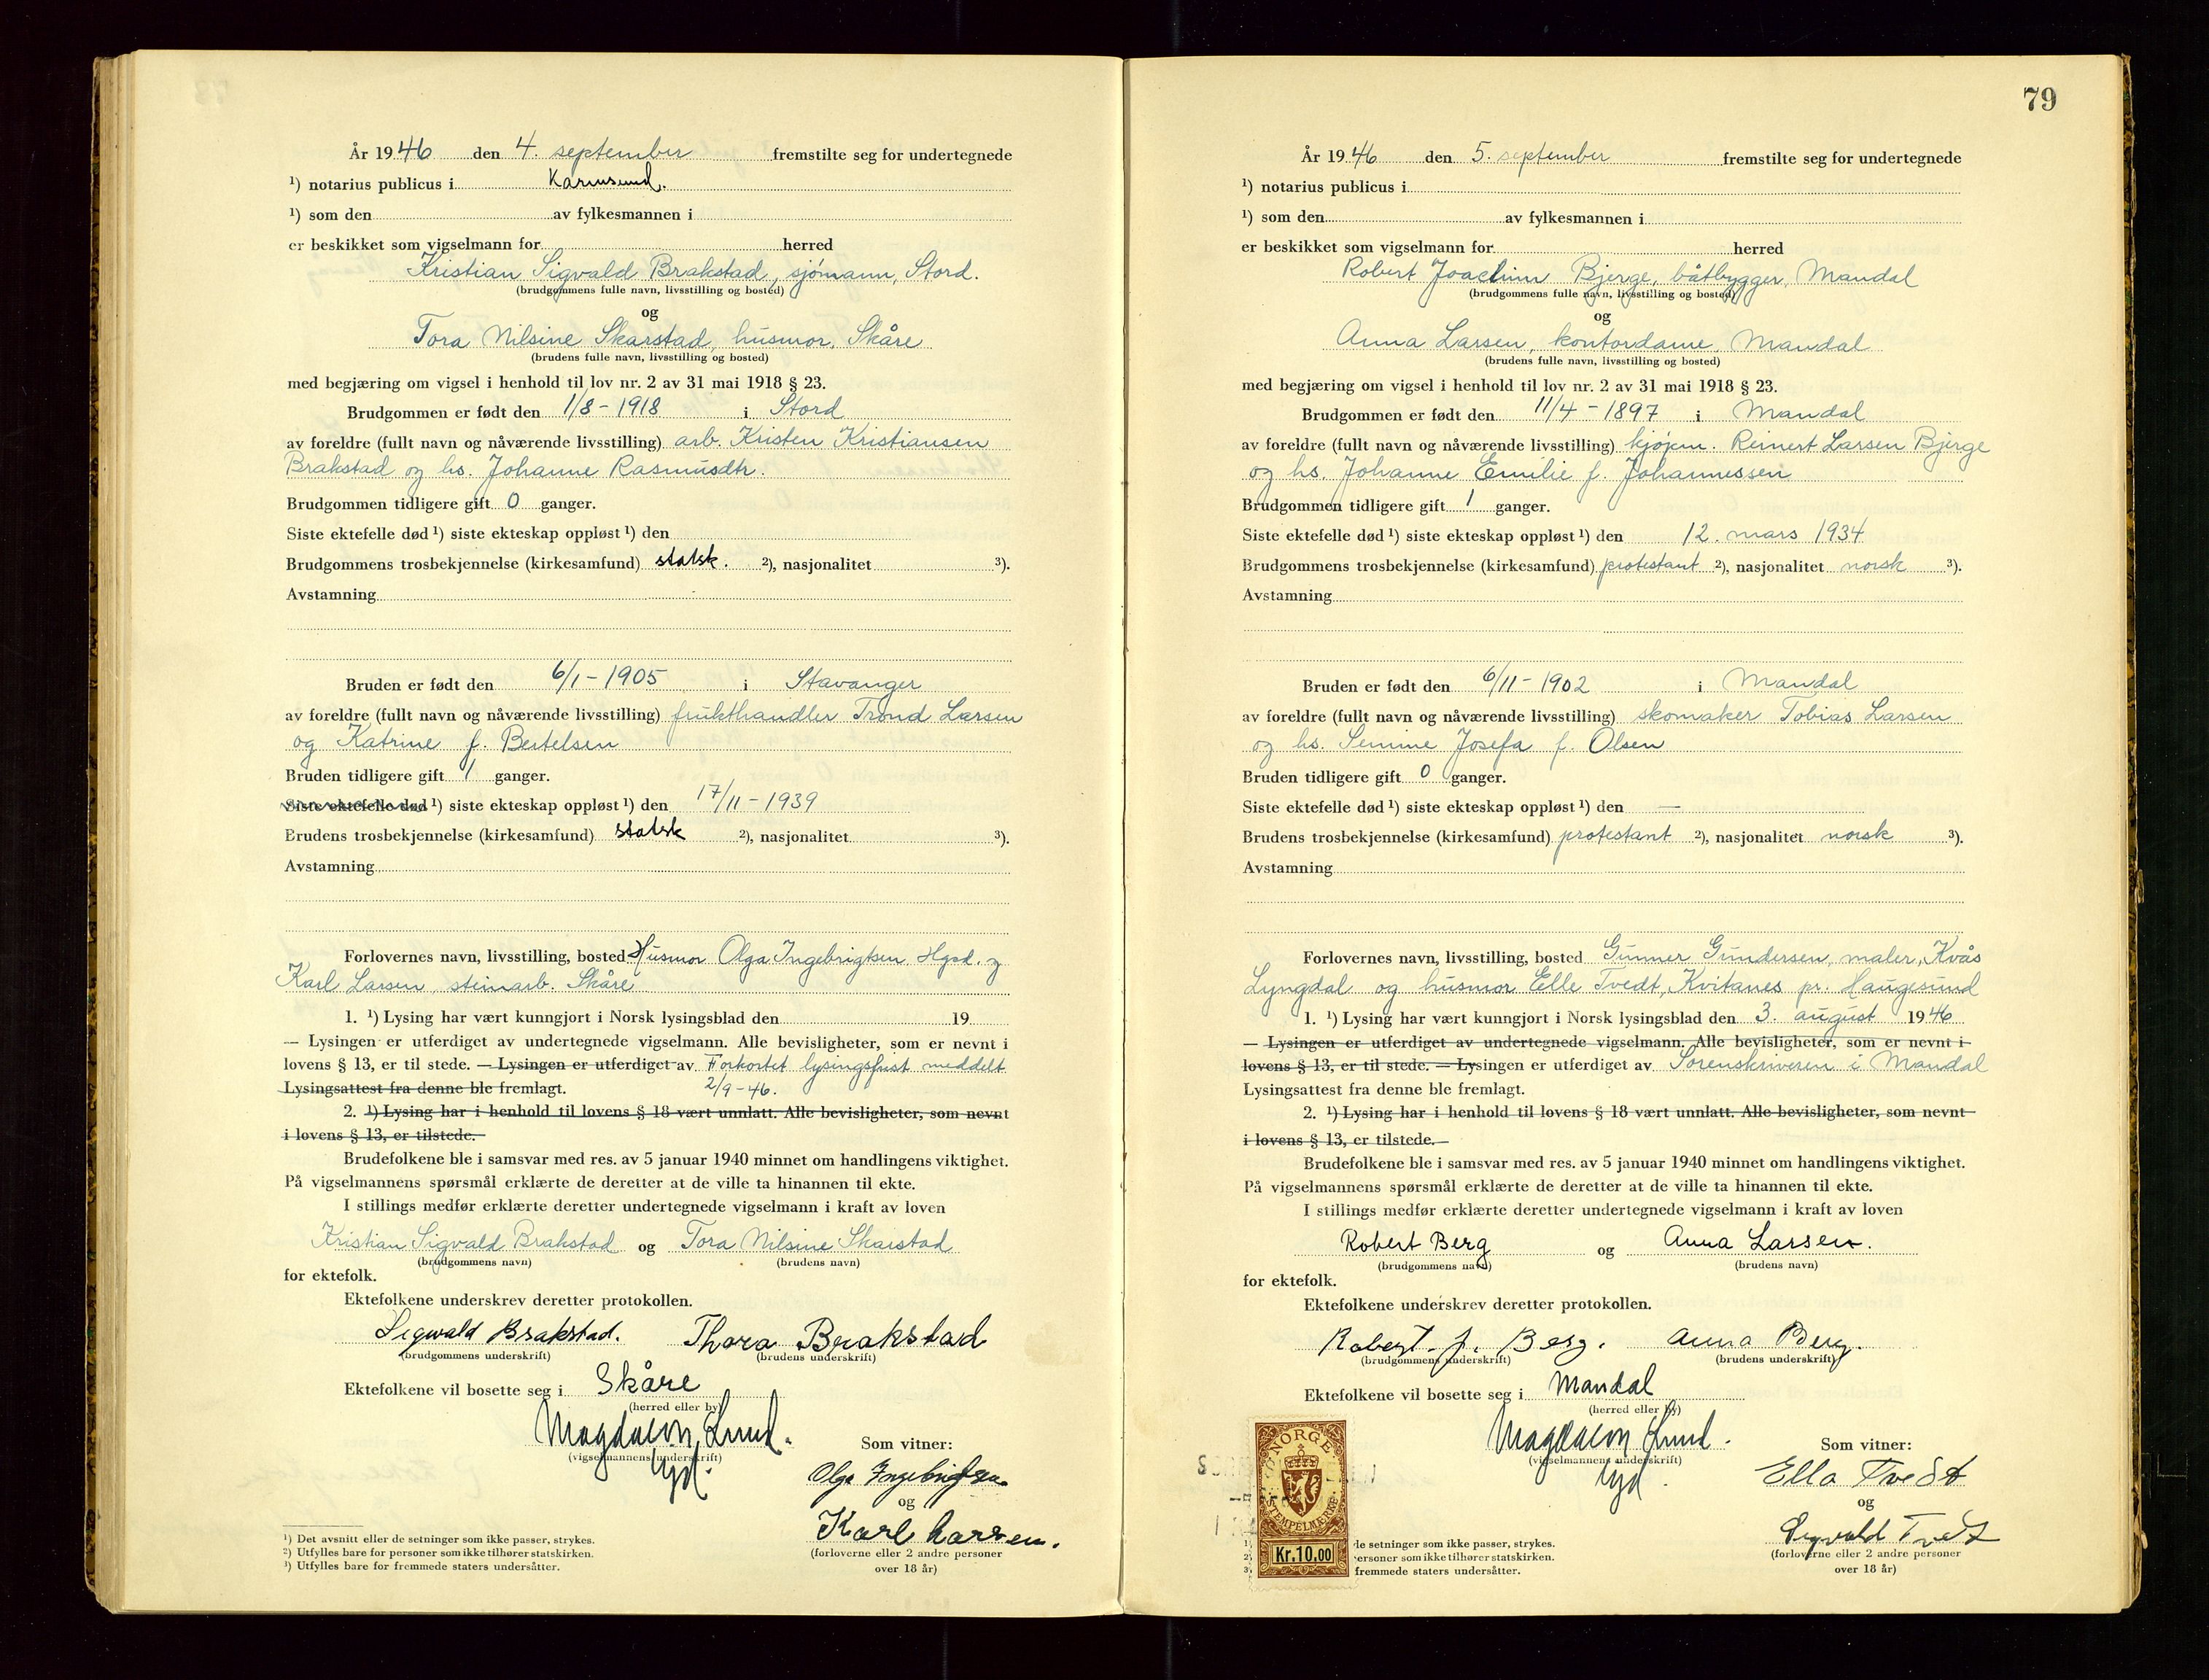 År 1946 den 4. september fremstilte seg for undertegnede
¹) notarius publicus i Karmsund.
¹) som den av fylkesmannen i
er beskikket som vigselmann for herred
Kristian Sigvald Brakstad, sjømann, Stord.
(brudgommens fulle navn, livsstilling og bosted)
og
Tora Nilsine Skarstad, husmor, Skåre
(brudens fulle navn, livsstilling og bosted)
med begjæring om vigsel i henhold til lov nr. 2 av 31 mai 1918 § 23.
Brudgommen er født den 1/8 - 1918 i Stord
av foreldre (fullt navn og nåværende livsstilling) arb. Kristen Kristiansen
Brakstad og hs. Johanne Rasmusdtr.
Brudgommen tidligere gift 0 ganger.
Siste ektefelle død ¹) siste ekteskap oppløst ¹) den
Brudgommens trosbekjennelse (kirkesamfund) statsk. ²), nasjonalitet ³).
Avstamning
Bruden er født den 6/1 - 1905 i Stavanger
av foreldre (fullt navn og nåværende livsstilling) frukthandler Trond Larsen
og Katrine f. Bertelsen
Bruden tidligere gift 1 ganger.
Siste ektefelle død ¹) siste ekteskap oppløst ¹) den 17/11 - 1939
Brudens trosbekjennelse (kirkesamfund) statsk ²), nasjonalitet ³).
Avstamning
Forlovernes navn, livsstilling, bosted Husmor Olga Ingebrigtsen Hgsd. og
Karl Larsen, steinarb. Skåre
1. ¹) Lysing har vært kunngjort i Norsk lysingsblad den 19
— Lysingen er utferdiget av undertegnede vigselmann. Alle bevisligheter, som er nevnt i
lovens § 13, er til stede. — Lysingen er utferdiget av Forkortet lysingsfrist meddelt
Lysingsattest fra denne ble fremlagt. 2/9 - 46.
2. ¹) Lysing har i henhold til lovens § 18 vært unnlatt. Alle bevisligheter, som nevnt
i lovens § 13, er tilstede.
Brudefolkene ble i samsvar med res. av 5 januar 1940 minnet om handlingens viktighet.
På vigselmannens spørsmål erklærte de deretter at de ville ta hinannen til ekte.
I stillings medfør erklærte deretter undertegnede vigselmann i kraft av loven
Kristian Sigvald Brakstad og Tora Nilsine Skarstad
(brudgommens navn) (brudens navn)
for ektefolk.
Ektefolkene underskrev deretter protokollen.
Sigwald Brakstad. Thora Brakstad
(brudgommens underskrift) (brudens underskrift)
Ektefolkene vil bosette seg i Skåre
(herred eller by)
Magdalon Lund.
(vigselmannens underskrift)
Som vitner:
Olga Ingebrigtsen
og
Karl Larsen.
(forloverne eller 2 andre personer
over 18 år)
¹) Det avsnitt eller de setninger som ikke passer, strykes.
²) Utfylles bare for personer som ikke tilhører statskirken.
³) Utfylles bare for fremmede staters undersåtter.
79
År 1946 den 5. september fremstilte seg for undertegnede
¹) notarius publicus i
¹) som den av fylkesmannen i
er beskikket som vigselmann for herred
Robert Joachim Bjerge, båtbygger, Mandal
(brudgommens fulle navn, livsstilling og bosted)
og
Anna Larsen, kontordame, Mandal
(brudens fulle navn, livsstilling og bosted)
med begjæring om vigsel i henhold til lov nr. 2 av 31 mai 1918 § 23.
Brudgommen er født den 11/4 - 1897 i Mandal
av foreldre (fullt navn og nåværende livsstilling) kjøpm. Reinert Larsen Bjerge
og hs. Johanne Emilie f. Johannessen
Brudgommen tidligere gift 1 ganger.
Siste ektefelle død ¹) siste ekteskap oppløst ¹) den 12. mars 1934
Brudgommens trosbekjennelse (kirkesamfund) protestant ²), nasjonalitet norsk ³).
Avstamning
Bruden er født den 6/11 - 1902 i Mandal
av foreldre (fullt navn og nåværende livsstilling) skomaker Tobias Larsen
og hs. Semine Josefa f. Olsen
Bruden tidligere gift 0 ganger.
Siste ektefelle død ¹) siste ekteskap oppløst ¹) den —
Brudens trosbekjennelse (kirkesamfund) protestant ²), nasjonalitet norsk ³).
Avstamning
Forlovernes navn, livsstilling, bosted Gunner Gundersen, maler, Kvås
Lyngdal og husmor Elle Tvedt, Kvitanes pr. Haugesund
1. ¹) Lysing har vært kunngjort i Norsk lysingsblad den 3. august 1946
— Lysingen er utferdiget av undertegnede vigselmann. Alle bevisligheter, som er nevnt i
lovens § 13, er til stede. — Lysingen er utferdiget av Sorenskriveren i Mandal
Lysingsattest fra denne ble fremlagt.
2. ¹) Lysing har i henhold til lovens § 18 vært unnlatt. Alle bevisligheter, som nevnt
i lovens § 13, er tilstede.
Brudefolkene ble i samsvar med res. av 5 januar 1940 minnet om handlingens viktighet.
På vigselmannens spørsmål erklærte de deretter at de ville ta hinannen til ekte.
I stillings medfør erklærte deretter undertegnede vigselmann i kraft av loven
Robert Berg og Anna Larsen.
(brudgommens navn) (brudens navn)
for ektefolk.
Ektefolkene underskrev deretter protokollen.
Robert J. Berg. Anna Berg.
(brudgommens underskrift) (brudens underskrift)
Ektefolkene vil bosette seg i Mandal
(herred eller by)
Magdalon Lund.
(vigselmannens underskrift)
Som vitner:
Ella Tvedt
og
Sigvald Tvedt
(forloverne eller 2 andre personer
over 18 år)
NORGE
STEMPELMÆRKE
Kr.10.00
de setninger som ikke passer, strykes.
personer som ikke tilhører statskirken.
fremmede staters undersåtter.